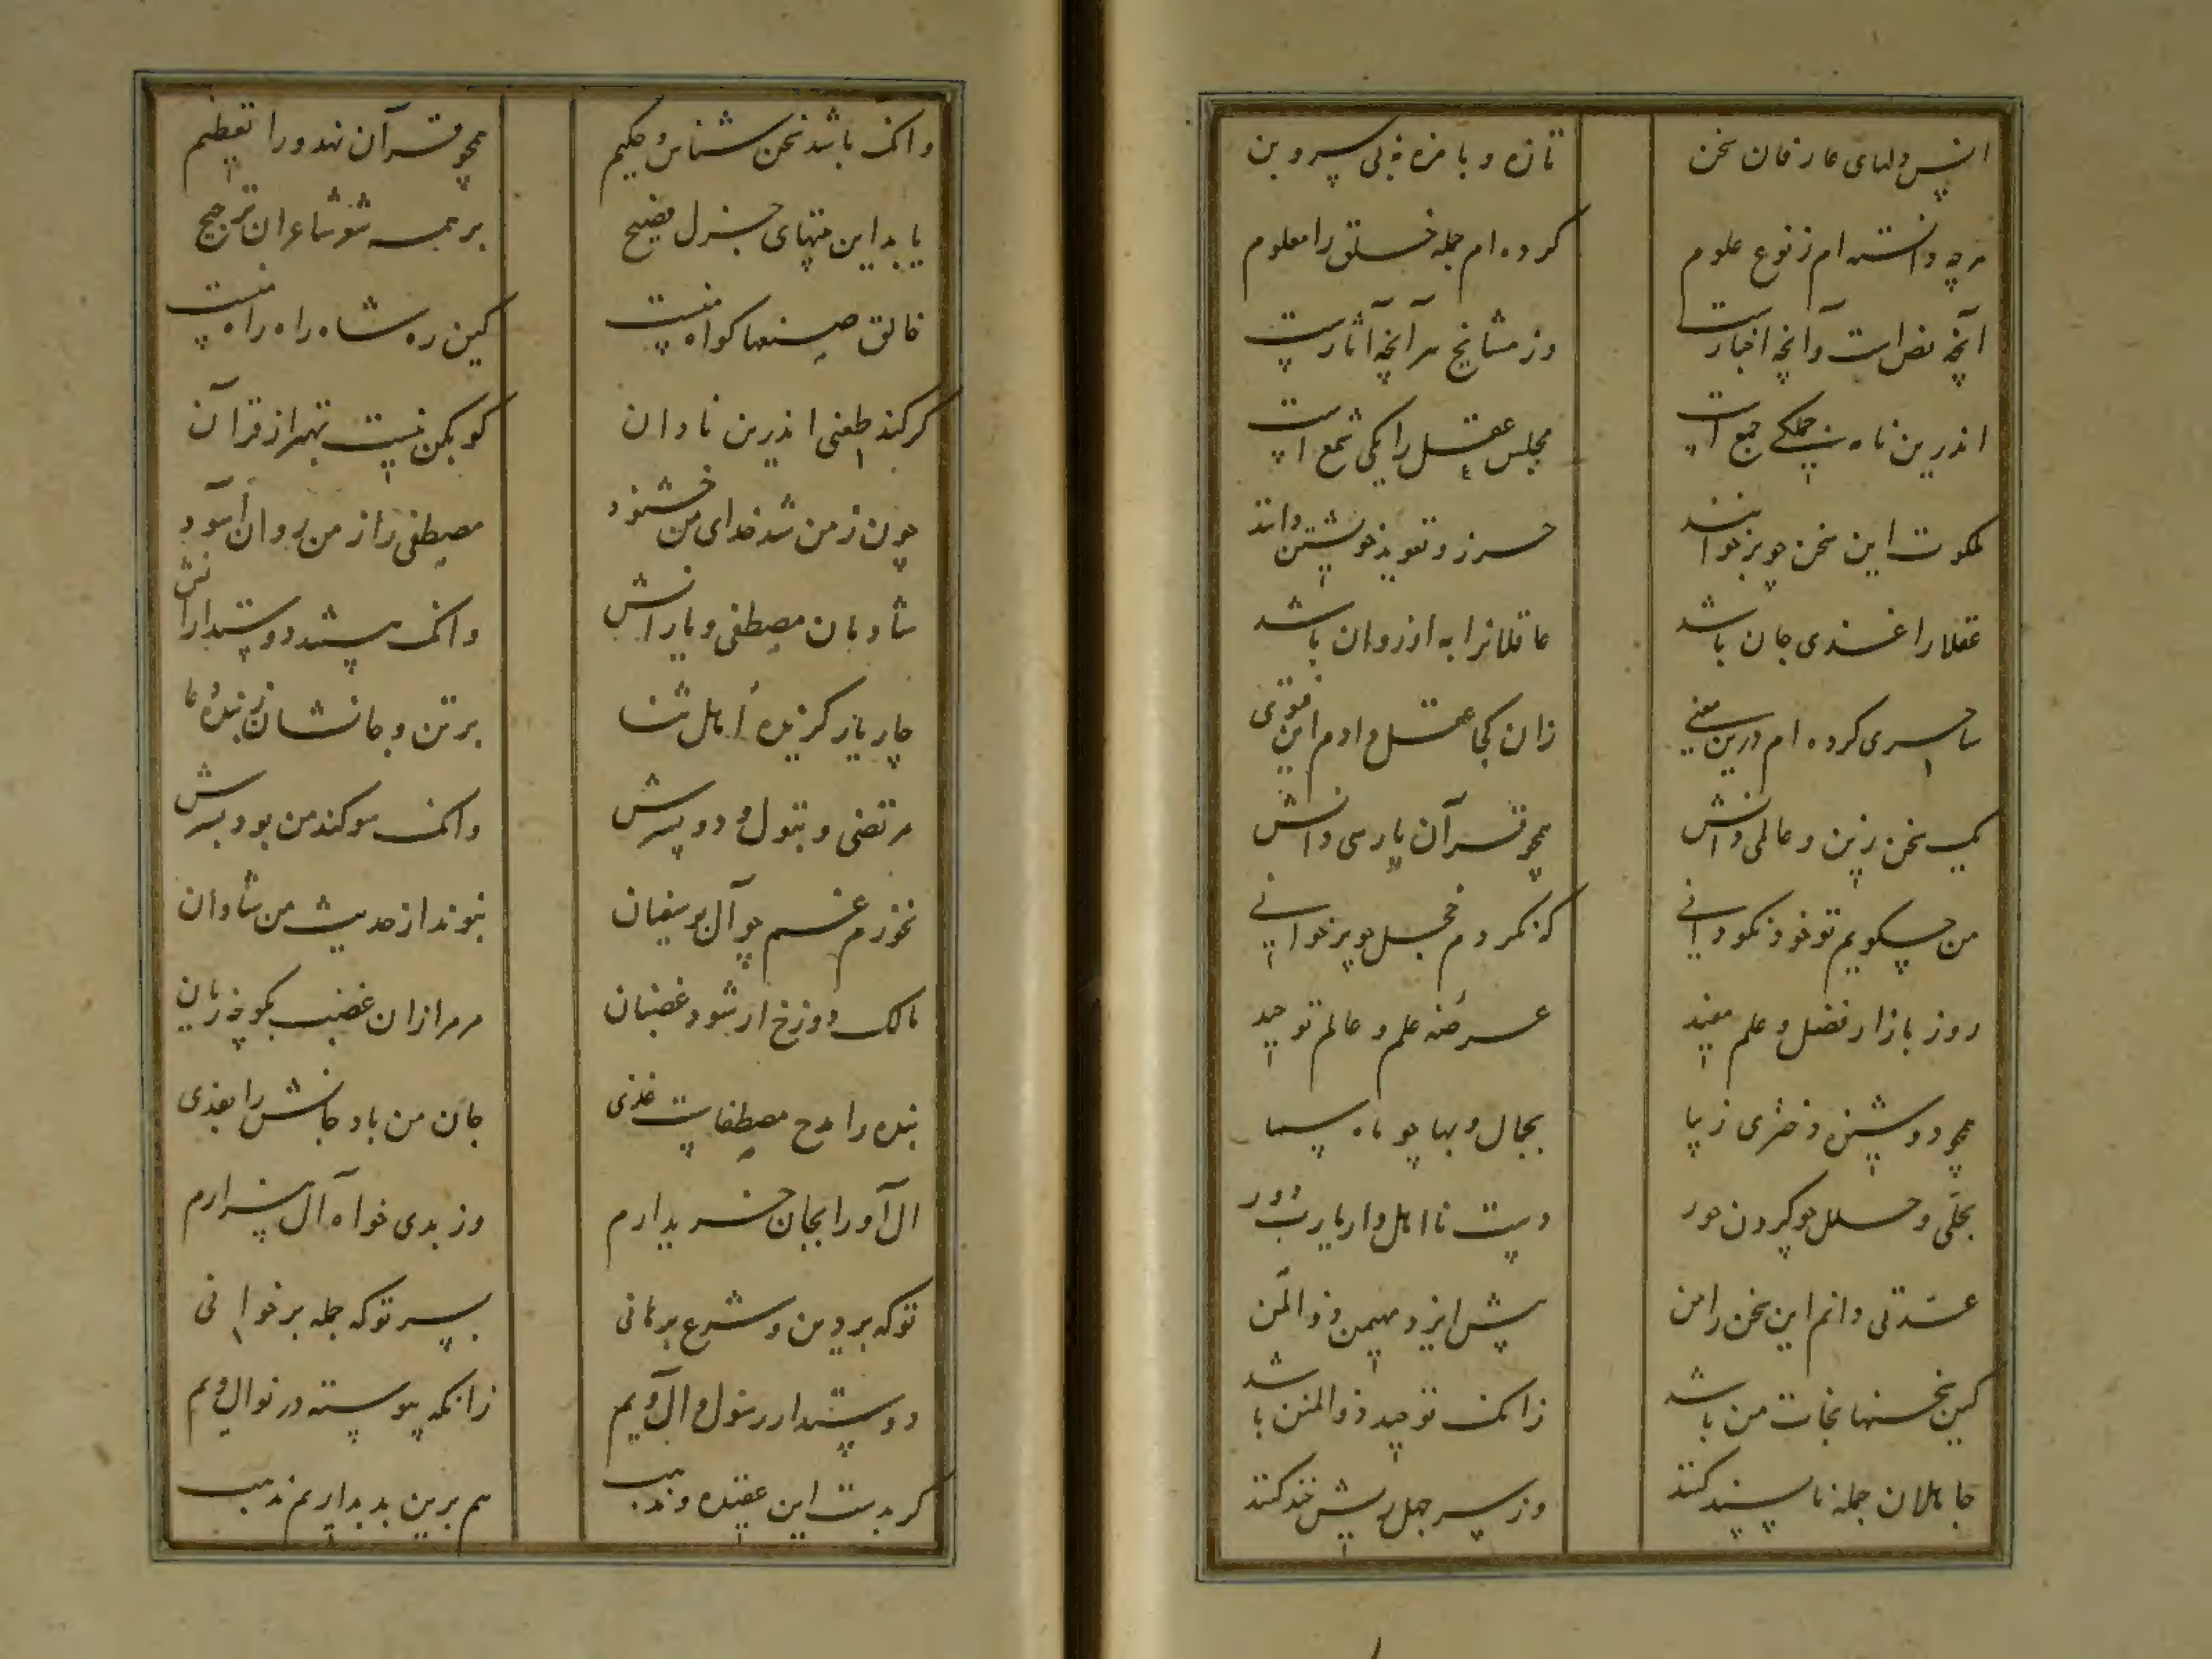 انس دلهای عارفان سخن
تازه و با مزه نه بی سر و بن
هرچه دانسته ام ز نوع علوم
کرده ام جمله خلق را معلوم
آنچه نص است و آنچه اخبارست
وز مشایخ هر آنچه آثارست
اندرین نامه جملگی جمع است
مجلس عقل را یکی شمع است
ملکوت این سخن چو برخوانند
حرز و تعویذ خویشتن دانند
عقلا را غذی جان باشد
عاقلانرا به از روان باشد
ساحری کرده ام درین معنی
زان کجا عقل دادم این فتوی
یک سخن زین و عالمی دانش
همچو قرآن پارسی دانش
من چگویم تو خود نکو دانی
که نکردم خجل چو برخوانی
روز بازار فضل و علم مفید
عرصهٔ علم و عالم توحید
همچو دوشیزه دختری زیبا
بجمال و بها چو ماه سما
بحلی و حلل چو گردن حور
دست نااهل دار یارب دور
عدتی دانم این سخن را من
پیش ایزد مهیمن ذوالمن
کین سخنها نجات من باشد
زانک توحید ذوالمنن باشد
جاهلان جمله ناپسند کنند
وز سر جهل ریش خند کنند
وانک باشد سخن شناس و حکیم
همچو قرآن نهد ورا تعظیم
یابد این بیتهای جزل فصیح
بر همه شعر شاعران ترجیح
خالق صنعها گواه منست
کین ره شاه راه راه منست
گر کند طعنی اندرین نادان
گو بکن نیست بهتر از قرآن
چون ز من شد خدای من خشنود
مصطفی را ز من روان آسود
شادمان مصطفی و یارانش
وانک هستند دوستدارانش
چار یار گزیده اهل ثنا
بر تن و جانشان ز بنده دعا
مرتضی و بتول و دو پسرش
وانک سوگند من بود بسرش
نخورم غم چو آل بوسفیان
نبوند از حدیث من شادان
مالک دوزخ ار شود غضبان
مر مرا زان غضب بگو چه زیان
بنده را مدح مصطفاست غذی
جان من باد جانش را بفدی
آل او را بجان خریدارم
وز بدی خواه آل بیزارم
توکه بر دین و شرع برهانی
بسر توکه جمله برخوانی
دوستدار رسول و آل ویم
زانکه پیوسته در نوال ویم
گر بدست این عقیده و مذهب
هم برین بد بداریم مذهب